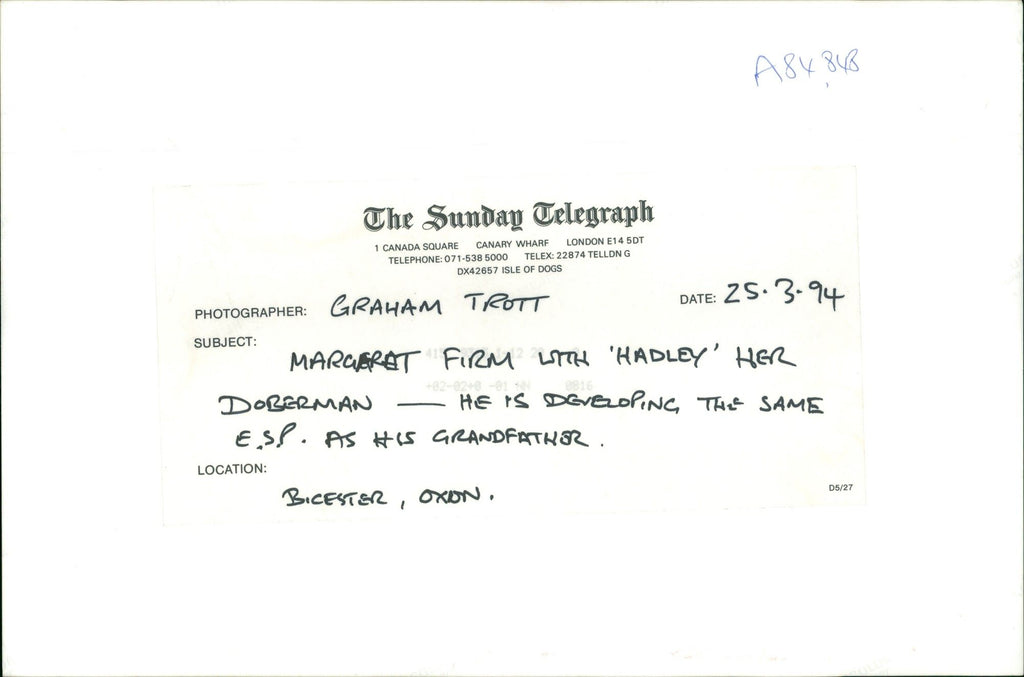 A84,848
The Sunday Telegraph
1 CANADA SQUARE CANARY WHARF LONDON E14 5DT
TELEPHONE: 071-538 5000 TELEX: 22874 TELLDN G
DX42657 ISLE OF DOGS
PHOTOGRAPHER: GRAHAM TROTT DATE: 25.3.94
SUBJECT:
MARGERET FIRM WITH 'HADLEY' HER
DOBERMAN — HE IS DEVELOPING THE SAME
E.S.P. AS HIS GRANDFATHER.
LOCATION:
BICESTER, OXON.
D5/27